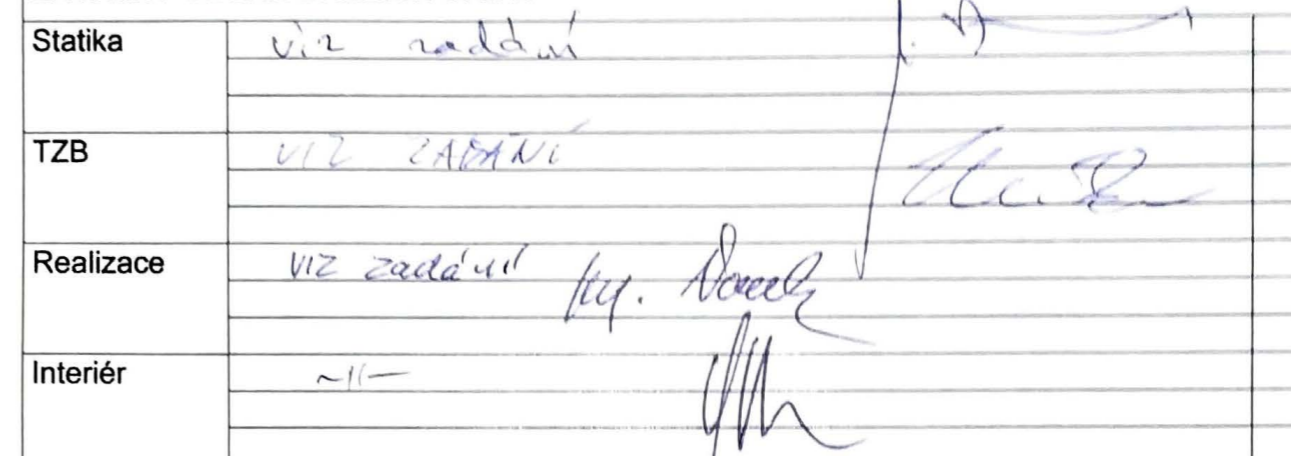 Statika viz zadání
TZB VIZ ZADÁNÍ
Realizace viz zadání Ing.
Interiér -||-